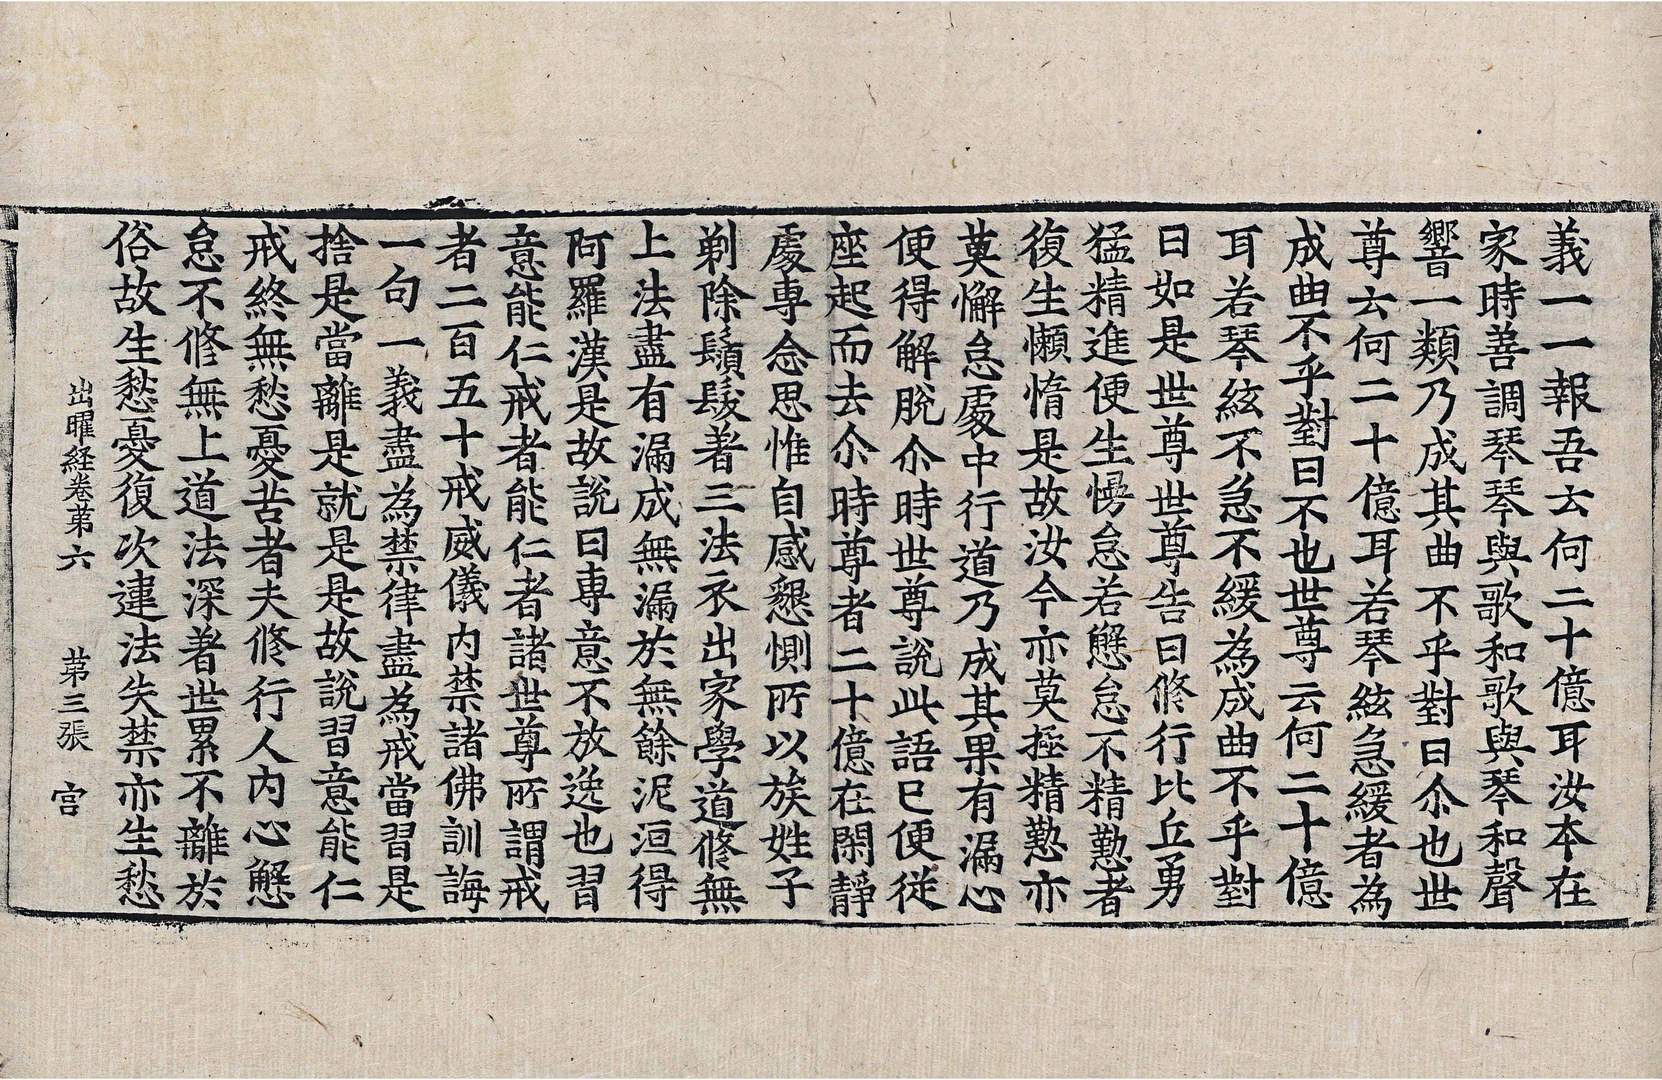 義一一報吾去何二十億耳汝本在
家時善調琴琴與歌和歌與琴和聲
響一類乃成其曲不乎對曰尒也世
尊去何二十億耳若琴絃急緩者為
成曲不乎對曰不也世尊云何二十億
耳若琴絃不急不緩為成曲不乎對
曰如是世尊世尊告曰修行比丘勇
猛精進便生慢怠若懈怠不精懃者
復生懶惰是故汝今亦莫極精懃亦
莫懈怠處中行道乃成其果有漏心
便得解脫尒時世尊說此語已便從
座起而去尒時尊者二十億在閑靜
處專念思惟自感懇惻所以族姓子
剃除鬚髮著三法衣出家學道修無
上法盡有漏成無漏於無餘泥洹得
阿羅漢是故說曰專意不放逸也習
意能仁戒者能仁者諸世尊所謂戒
者二百五十戒威儀内禁諸佛訓誨
一句一義盡為禁律盡為戒當習是
捨是當離是就是是故說習意能仁
戒終無愁憂苦者夫修行人内心懈
怠不修無上道法深著世累不離於
俗故生愁憂復次違法失禁亦生愁
出曜経卷第六 第三張 宫